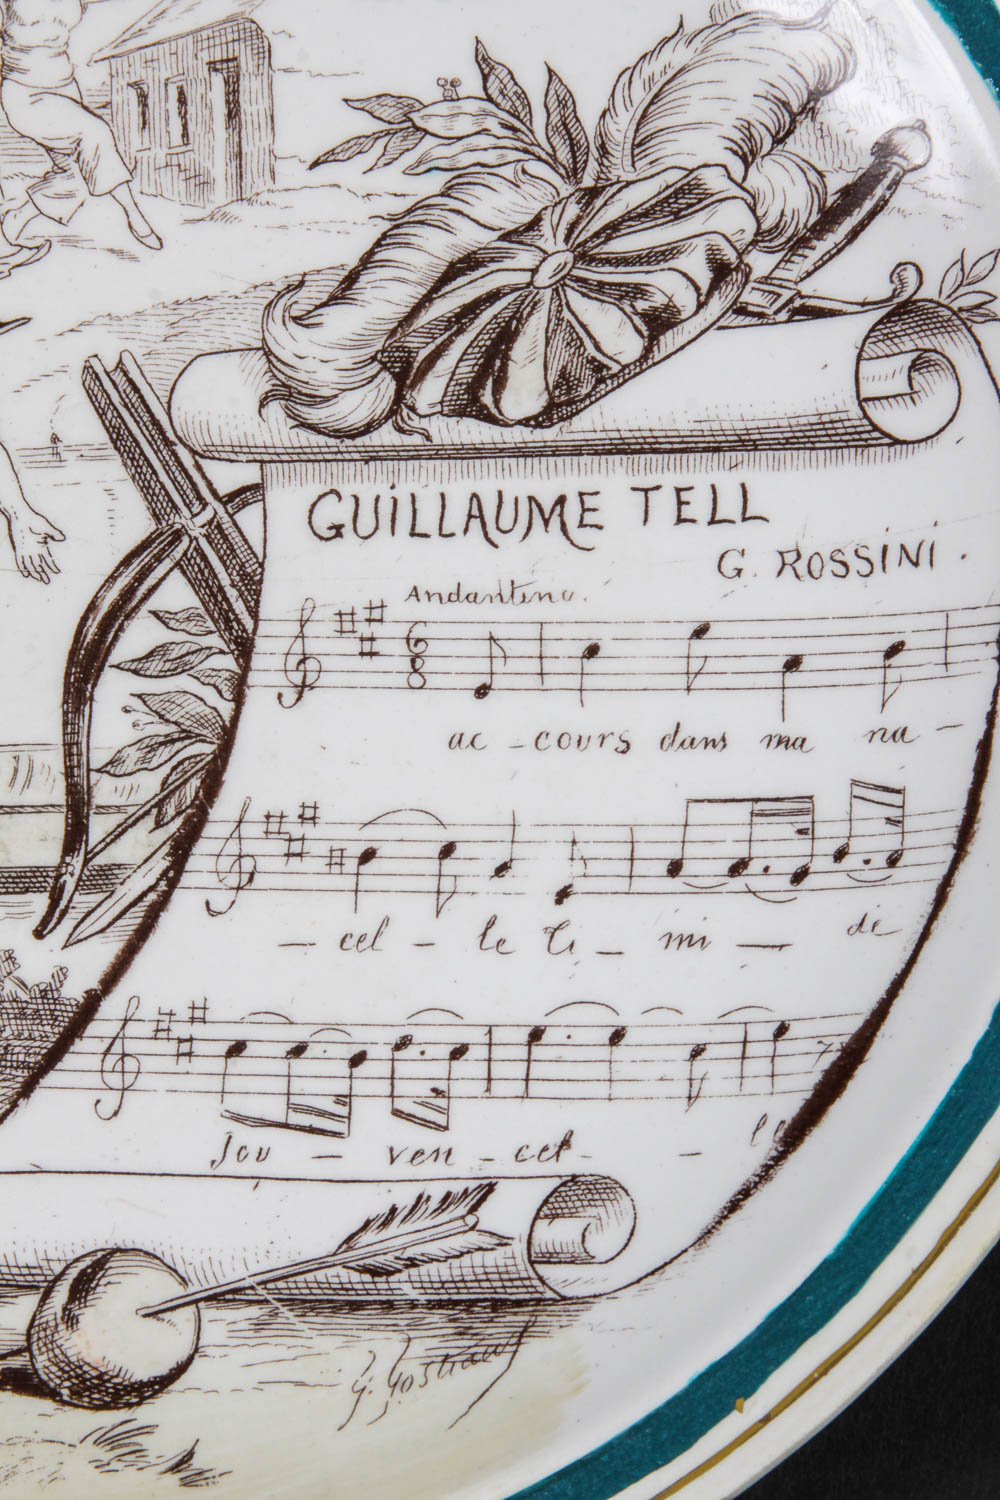 GUILLAUME TELL
G. ROSSINI.
Andantino.
6
8
ac - cours dans ma na -
- cel - le ti - mi - de
Jou - ven - cel - - le